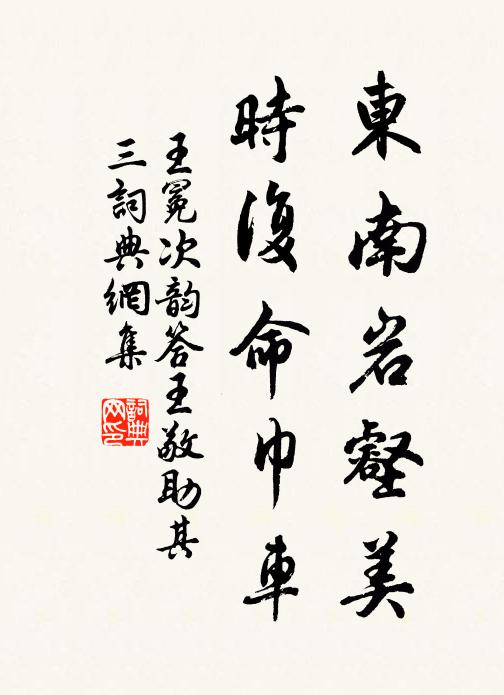 東南岩壑美
時復命巾車
王冕次韵答王敬助其
三詞典網集
詞典網印